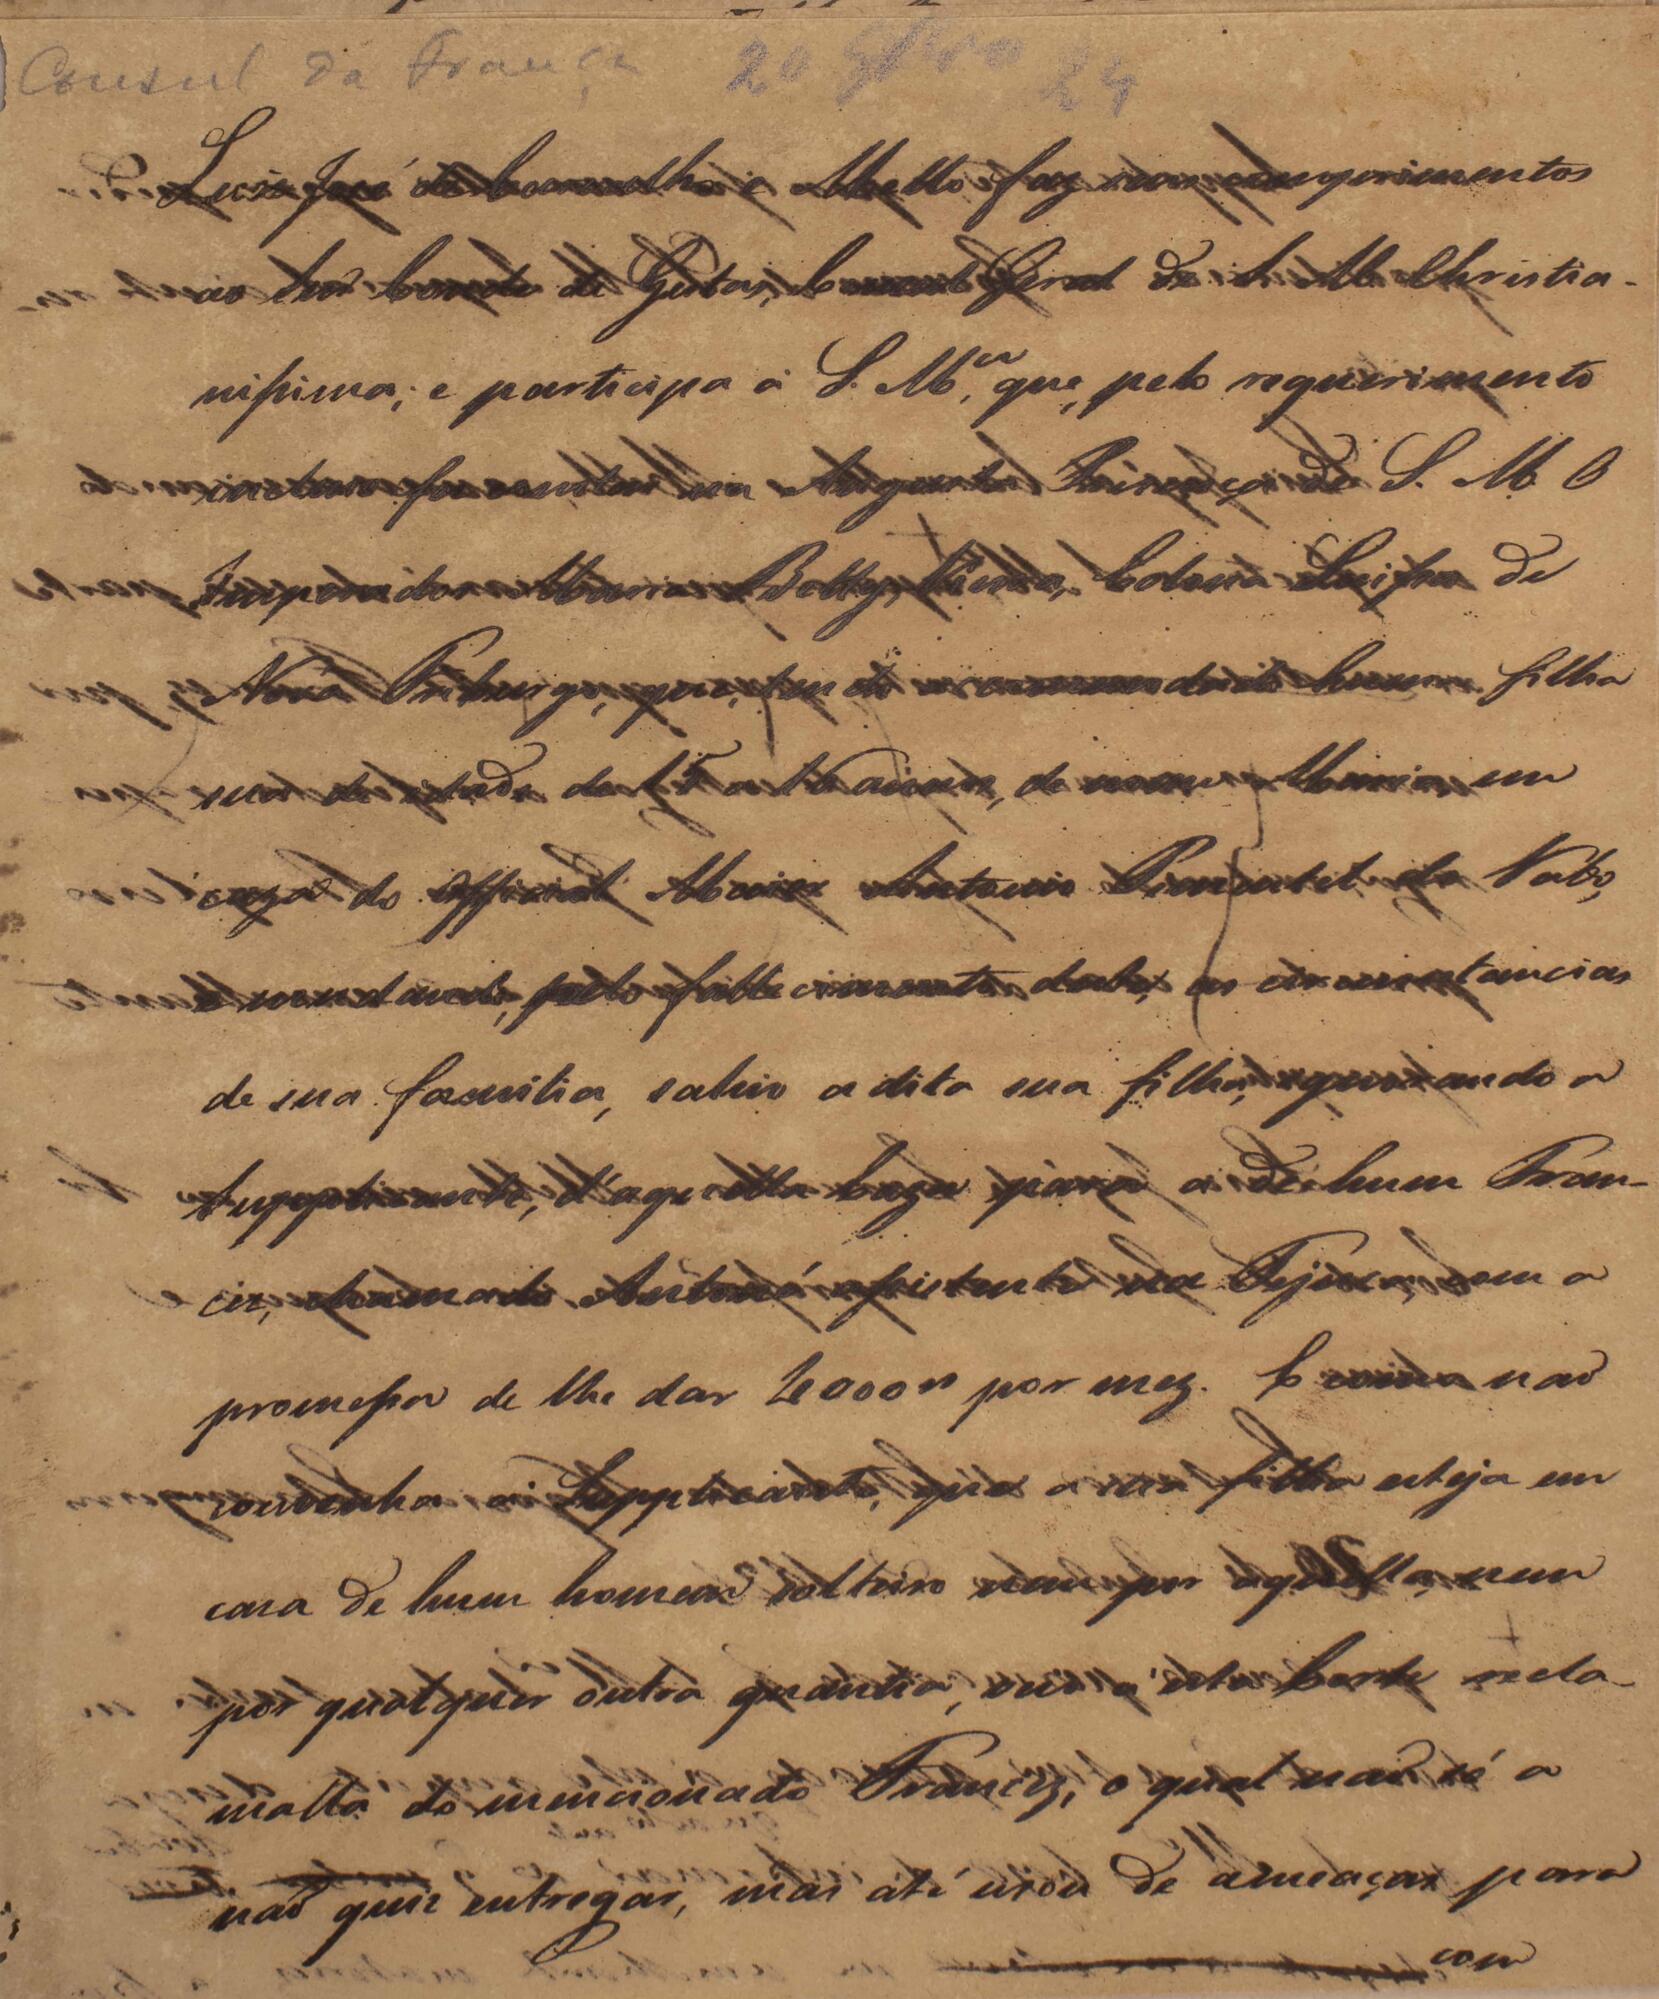 Consul da França 20 9bro 24
Luis José de Carvalho e Mello faz seus cumprimentos
ao Snr̃ Conde de Gestas, Consul Geral de S. M. Christia-
nissima; e participa á S. M.ce que, pelo requerimento
incluso fez constar na Augusta Prezença de S. M. O
Imperador Maria Betty, Colona Suissa de
Nova Friburgo, que, tendo accommodado huma filha
sua de idade de 15 a 16 annos, de nome Maria, em
caza do Official Maior Antonio Pimentel do Vabo,
e mudando, pelo fallecimento deste, as circunstancias
de sua familia, sahio a dita sua filha, ignorando a
Supplicante, d'aquella Caza para a de hum Fran-
cez, chamado Antoná assistente na Tejuca, com a
promessa de lhe dar 4000rs por mez. E como não
convenha á Supplicante, que a sua filha esteja em
casa de hum homem solteiro nem por aquella, nem
por qualquer outra quantia, veio á esta Corte recla-
malla do mencionado Francez, o qual não só a
não quiz entregar, mas até usou de ameaças para
com